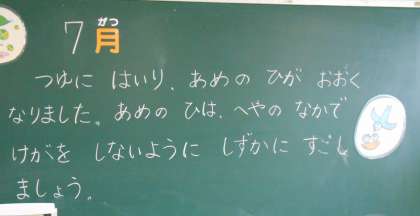 がつ
7月
つゆに はいり、あめの ひが おおく
なりました。あめの ひは、へやの なかで
けがを しないように しずかに すごし
ましょう。